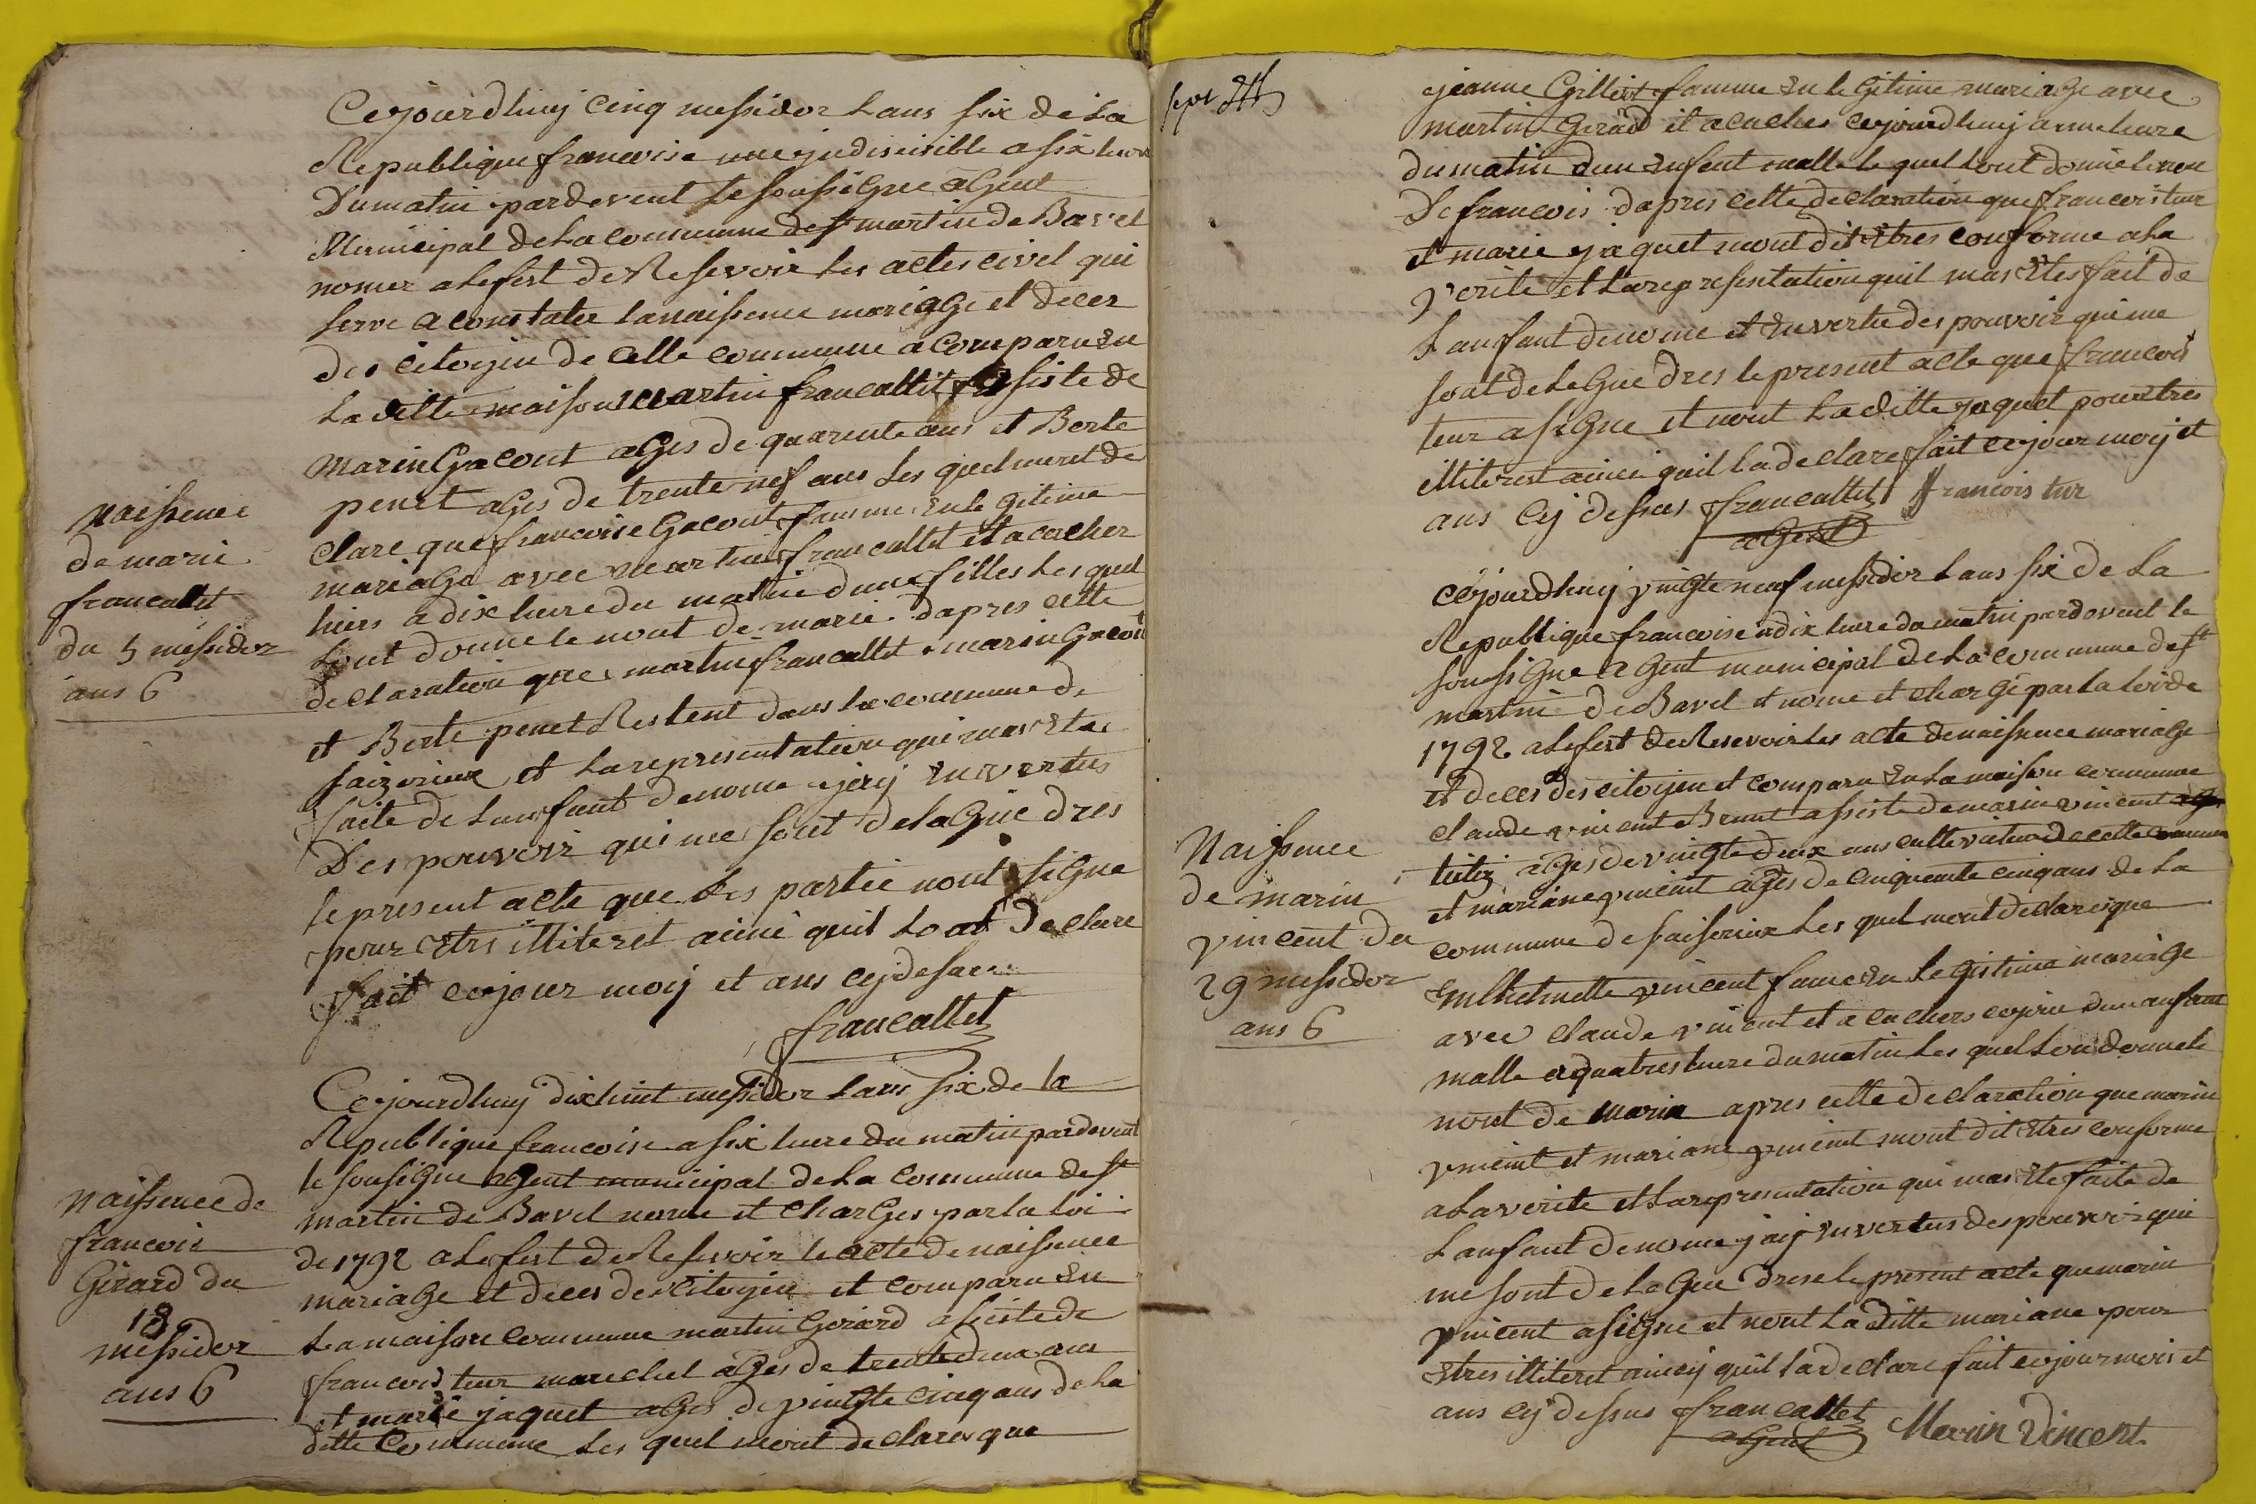 Cejourdhuy cinq messidor Lans six de La
Republique francoise une yndiseisible a six heure
Du matin pardevent Le soussigne agent
Municipal de La commune de st martin de Bavel
nomer a Lefest de Resevoir Les actes civel qui
serve a constater Lanaissence mariage et deces
des citoyin de celle commune a comparu En
La ditte maison martin francallet assiste de
marin Gacont ages de quarente ans et Berte
penet ages de trente nef ans Les quel mont de
clare que francoise Gacont famme En Le gitime
mariage avec martin francallet et a coucher
hiers a dix heure du matin dune filles Les quel
Lont donne le nont de marie dapres cette
declaration que martin francallet marin Gacont
et Berte penet Restent dans La commune de
saizerieux et La representation qui mas Ete
faite de Lanfant denome jey En vertus
Des pouvoir qui me sont delague dres
le present acte que Les partie nont signe
pour Etre illiteret ainci quil Lont Declare
fait cejour moij et ans cy desus
francallet
naissence
de marie
francallet
du 5 messidor
ans 6
Cejourdhuy dixhuit messidor Lans six de La
Republique francoise a six heure du matin pardevent
le sousigne agent municipal de La commune de st
martin de Bavel nome et charges par La loi
de 1792 a Lefest de Resevoir le acte de naissence
mariage et deces des citoyin et comparu En
La maison commune martin Gerard assiste de
francois teur marechel ages de trente deux ans
et marie jaquet ages de vingte cinq ans de La
ditte commune Les quel mont declares que
naissence de
francois
Girard du
18
messidor
ans 6
sept
jeanne Gilliet famme En Le Gitime mariage avec
martin Gerard et a couches cejourdhuy a une heure
du matin dun Enfent malle le quel Lont donne le non
De francois dapres cette declaration que francois teur
et marie jaquet mont dit Etres conforme a La
verite et La representation quil mas Etes fait de
Lanfant denome et En vertu des pouvoir qui me
sont delegue dres le present acte que francois
teur a signe et nont La ditte jaquet pour Etres
illiterest ainci quil La declare fait cejour moy et
ans cy dessus francallet francois tur
agent
Cejourdhuy vingte neuf messidor Lans six de La
Republique francoise a dix heure du matin pardovent le
soussigne agent municipal de La commune de st
martin de Bavel et nome et charge par La loi de
1792 a Lefest de Resevoir Les acte de naissence mariage
et deces des citoyin et comparu En La maison commune
claude vincent Brunt assiste de marin vincent
ages de vingte deux ans cultivateur de cette commune
et mariane vincent ages de cinquente cinq ans de La
commune de saiserieux Les quel mont declares que
vincent fame En Le gistime mariage
avec claude vincent et a couchers cejour dun anfant
malle a quatres heure du matin Les quel Lon donne le
nont de marin apres cette declaration que marin
vincent et mariane vincent mont dit Etres conforme
a La verite et La representation qui mas Ete faite de
Lanfant denome jay En vertus des pouvoir qui
me sont delegue drese le present acte que marin
vincent a signe et nont La ditte mariane pour
Etres illiteret aincy quil La declare fait cejour mois et
ans cy dessus francallet Merin Vincent
agent
Naissence
de marin
vincent du
29 messidor
ans 6